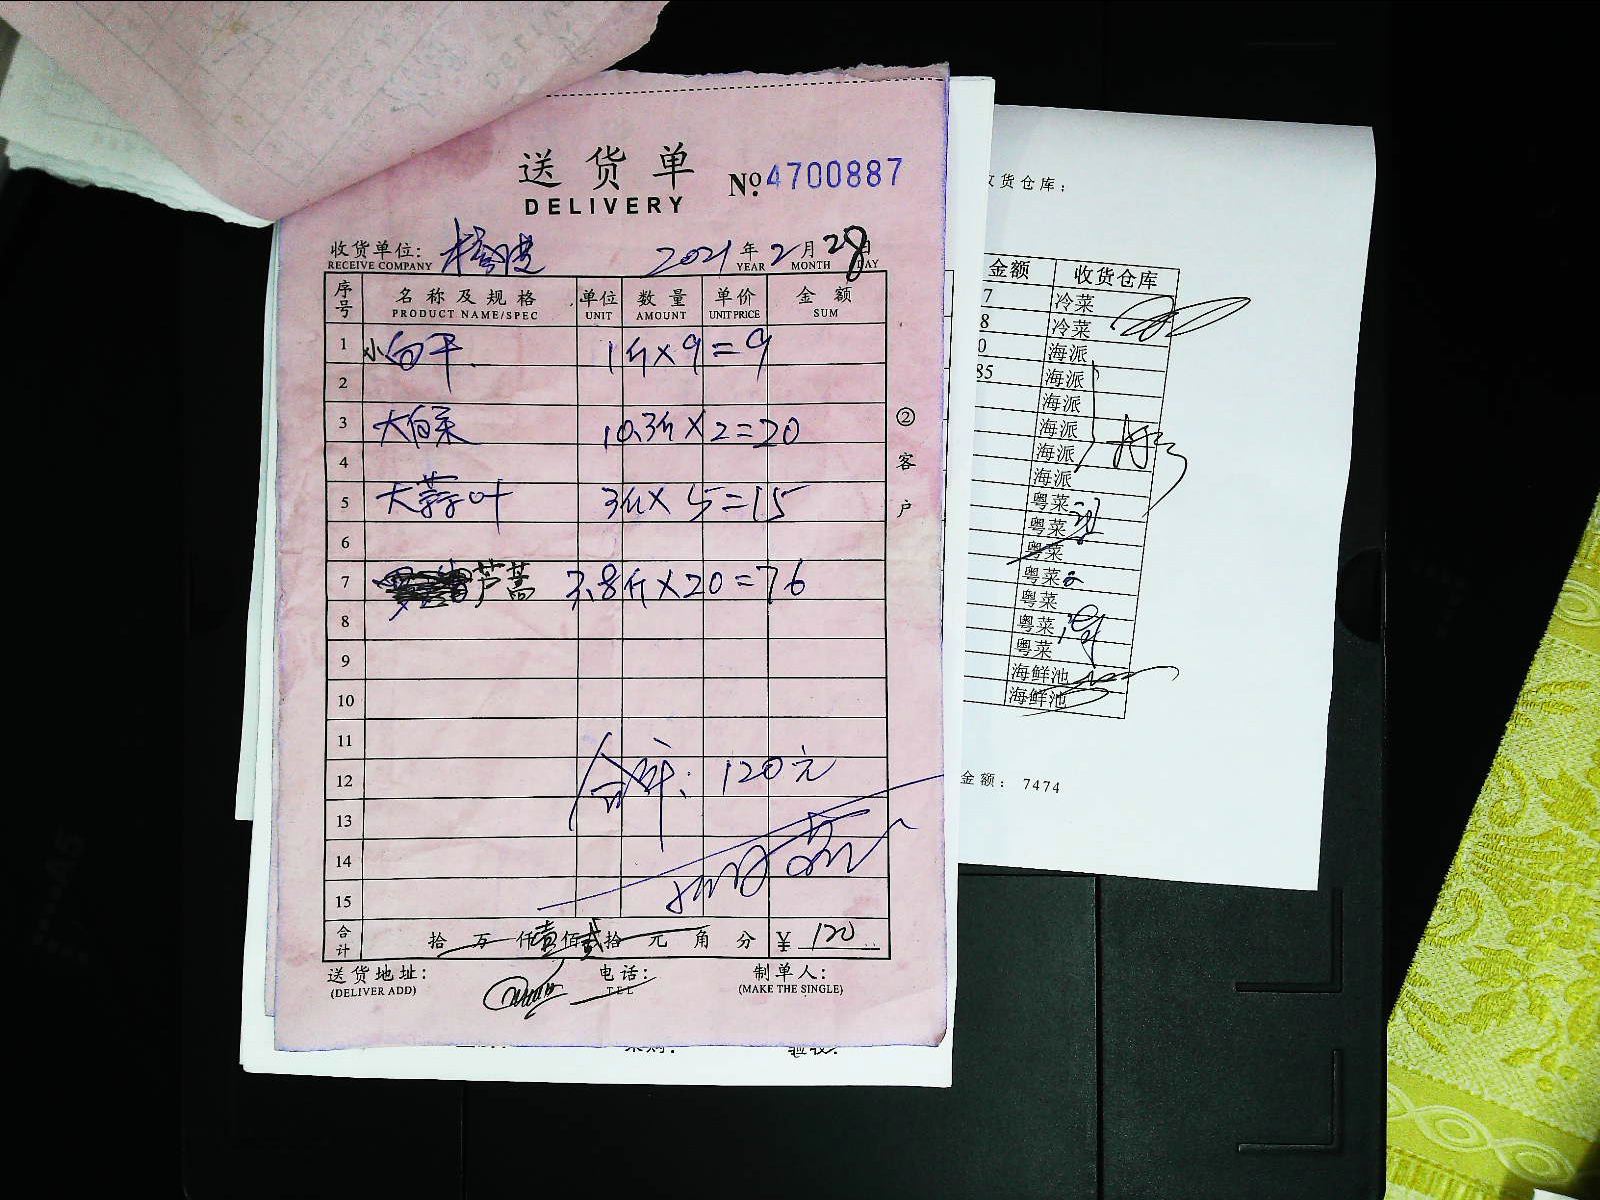 送货单
№ 4700887
DELIVERY
收货单位:
RECEIVE COMPANY
2021 年 2 月 28 日
YEAR MONTH DAY
序号 名称及规格 单位 数量 单价 金额
PRODUCT NAME/SPEC UNIT AMOUNT UNIT PRICE SUM
1 小白干 1斤×9=9
2
3 大白菜 10.3斤×2=20
4
5 大蒜叶 3斤×5=15
6
7 芦蒿 3.8斤×20=76
8
9
10
11
12 合计: 120元
13
14
15
合计 拾万仟壹佰贰拾元角分 ¥ 120
②客户
送货地址: 电话: 制单人:
(DELIVER ADD) TEL (MAKE THE SINGLE)
采购: 验收:
收货仓库:
金额 收货仓库
7 冷菜
8 冷菜
0 海派
85 海派
海派
海派
海派
海派
粤菜
粤菜
粤菜
粤菜
粤菜
粤菜
粤菜
海鲜池
海鲜池
金额: 7474